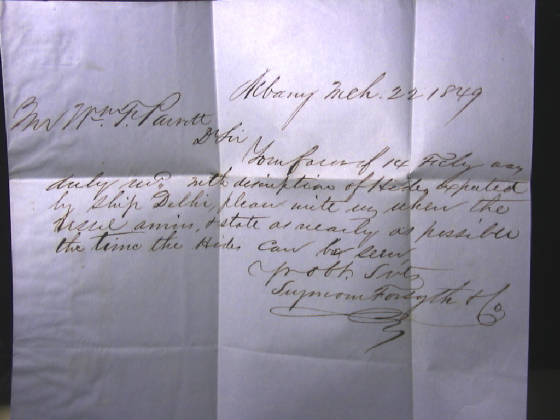 Albany Mch. 22 1849
Mr Wm. F. Parrott
Dr Sir
Your favor of 14 Feby was
duly recd. with description of Hides expected
by ship Delhi, please write us when the
Vessel arrives, & state as nearly as possible
the time the Hides can be seen
Yr obt. Svts
Seymour Forsyth & Co